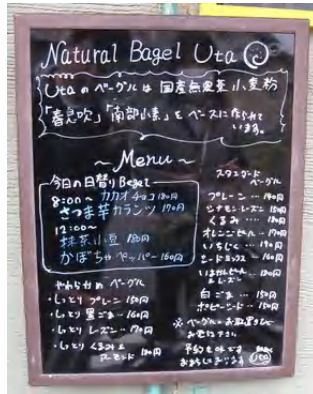 Natural Bagel Uta
Utaのベーグルは国産無農薬小麦粉
「春息吹」「南部小麦」をベースに作られて
います。
~ Menu ~
今日の日替りBagel
8:00~ カカオチョコ 180円
さつま芋カランツ 170円
12:00~
抹茶小豆 180円
かぼちゃペッパー 160円
やわらかめ ベーグル
・しっとり プレーン 150円
・しっとり 黒ごま 160円
・しっとり レーズン 170円
・しっとり くるみ&
アーモンド 180円
スタンダード
ベーグル
プレーン … 140円
シナモンレーズン 150円
くるみ … 180円
オレンジピール 170円
いちじく … 190円
シードミックス 160円
&レーズン
白ごま … 150円
ポピーシード … 150円
※ベーグルのお取置きなど
お電話下さい
予約もOKです
Uta